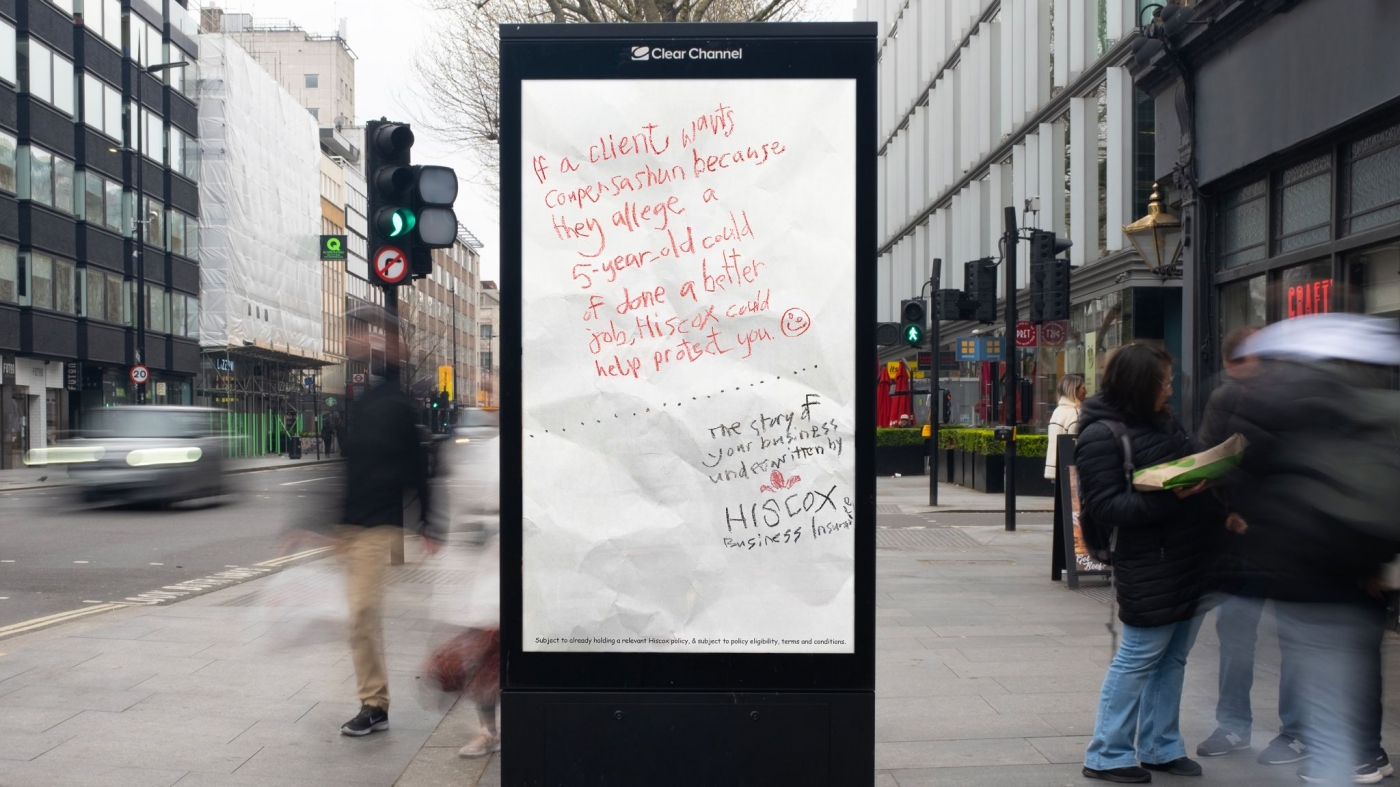 Clear Channel
If a client wants
compensashun because
they allege a
5-year-old could
of done a better
job, Hiscox could
help protect you.
The story of
your business
underwritten by
HISCOX
Business Insurance
Subject to already holding a relevant Hiscox policy, & subject to policy eligibility, terms and conditions.
20
Q
CRAFT